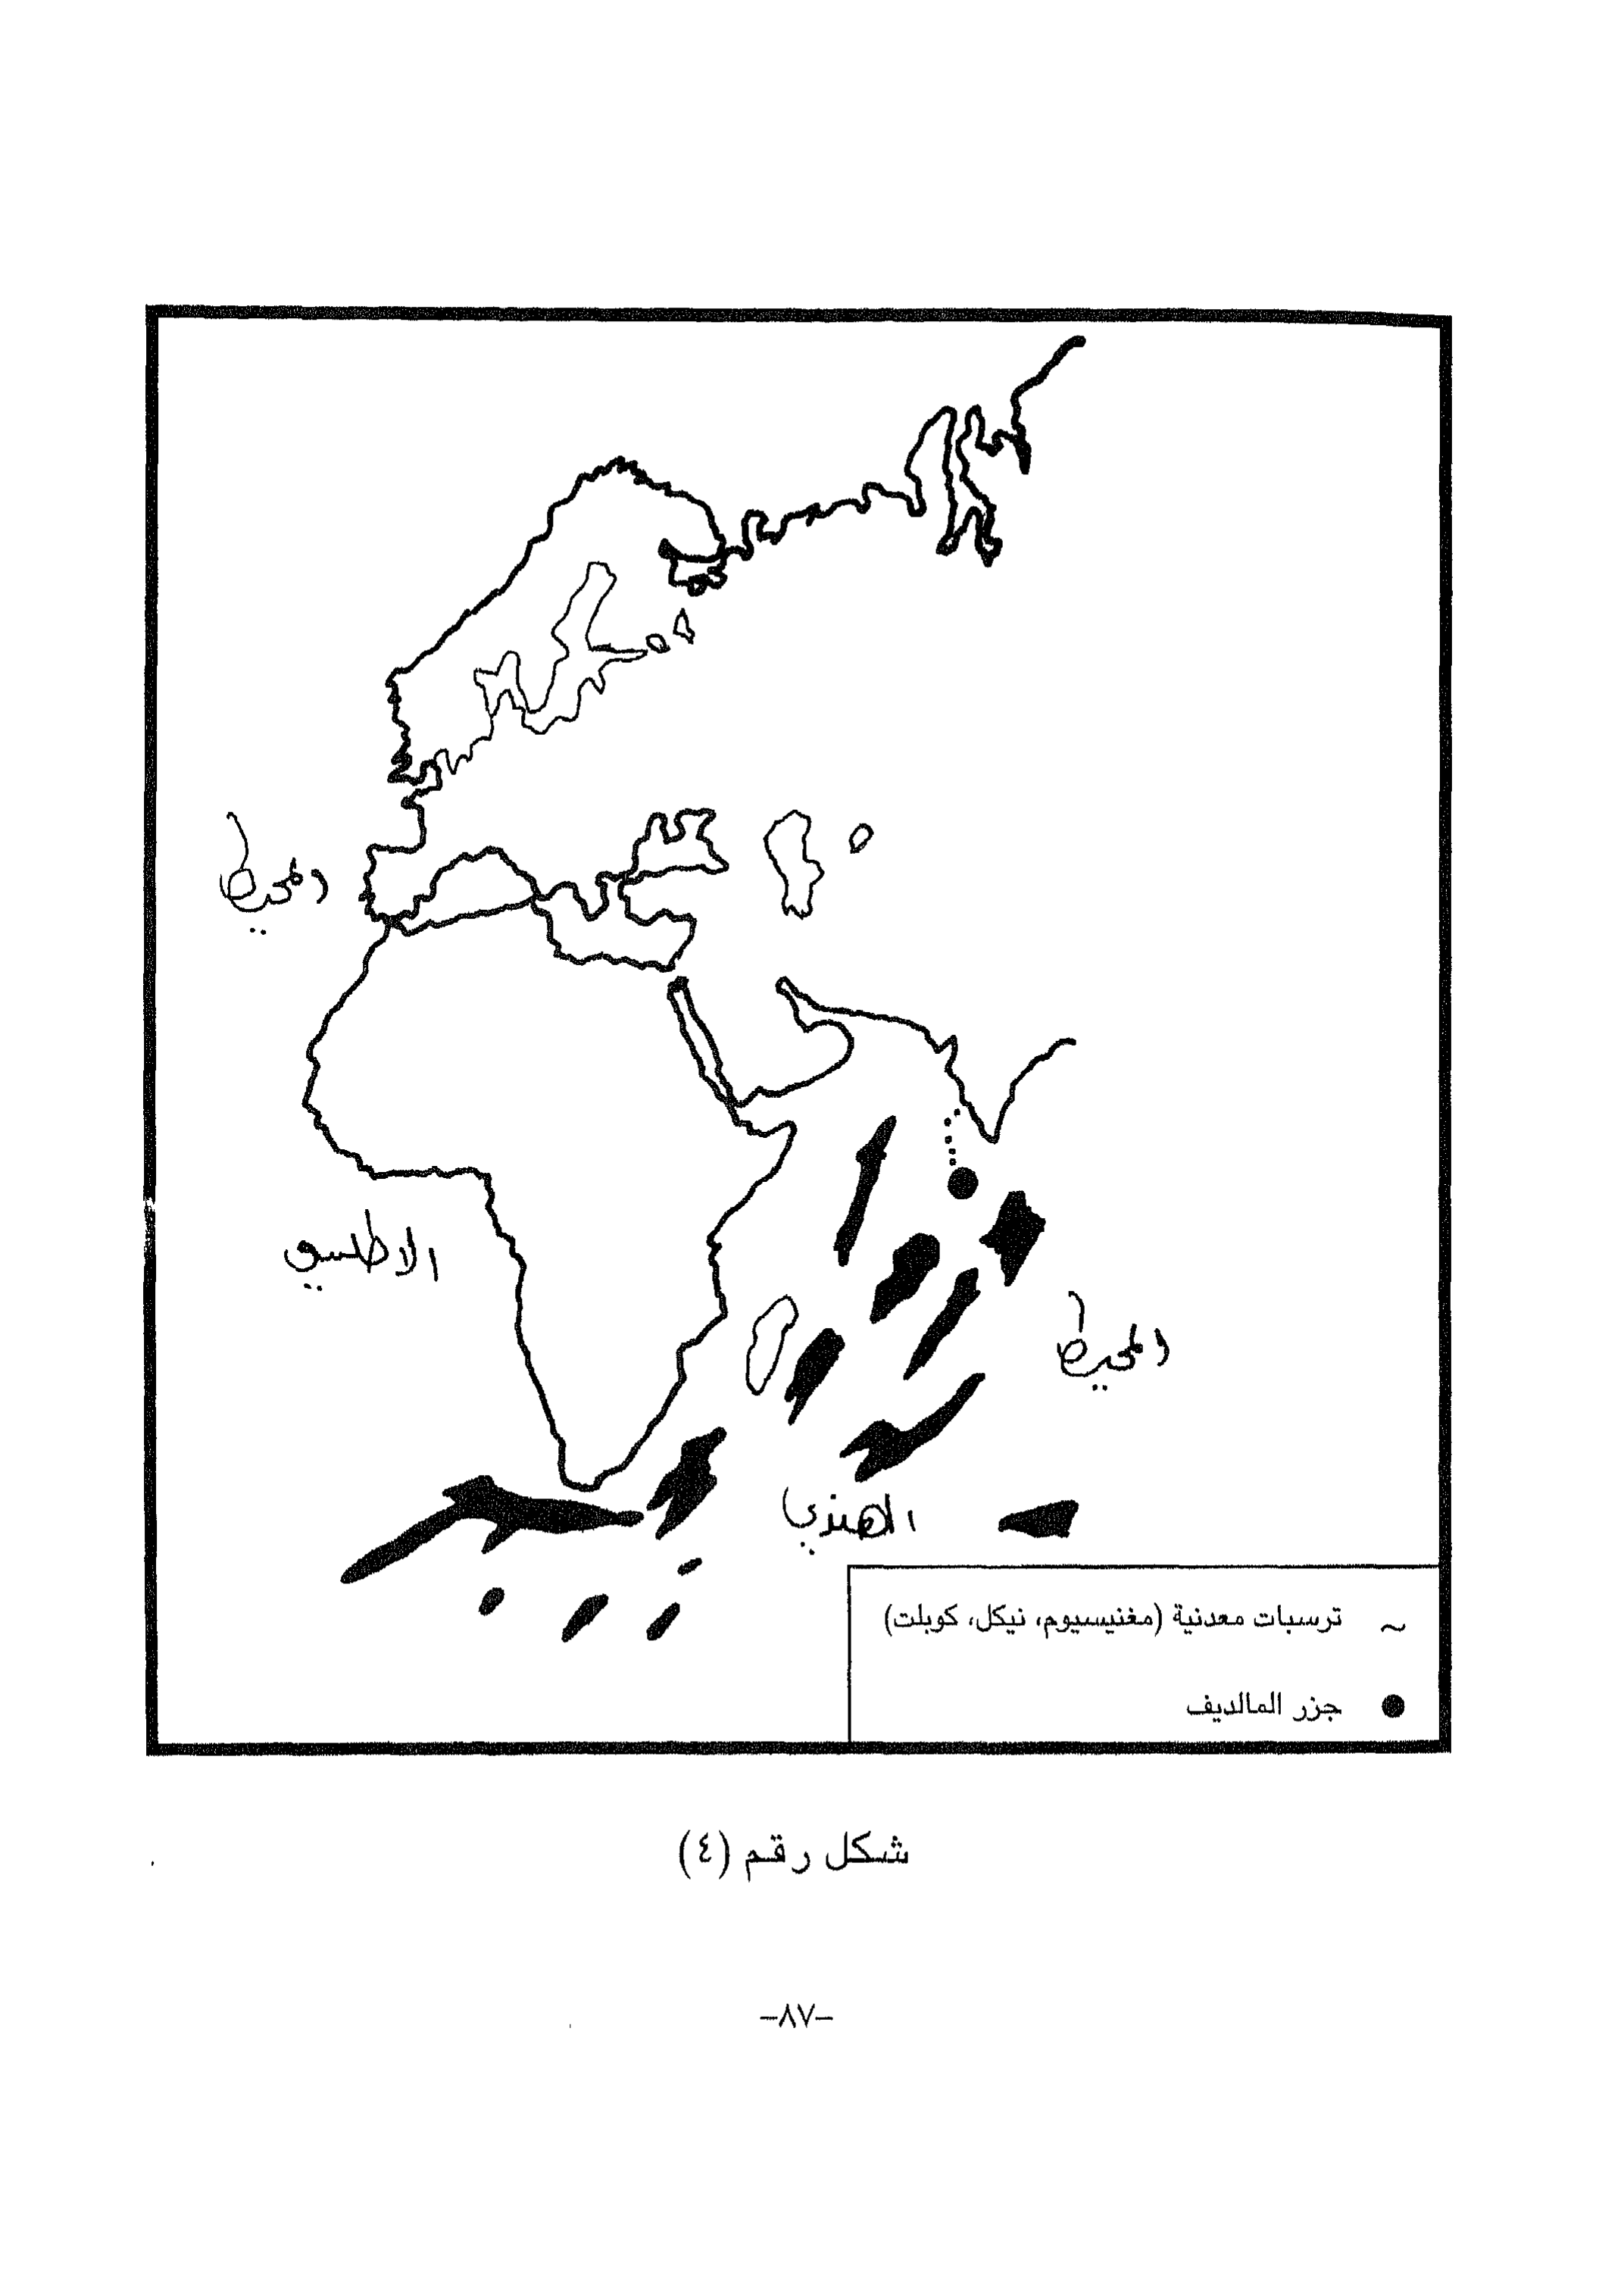 المحيط
الاطلسي
المحيط
الهندي
~ ترسبات معدنية (مغنيسيوم، نيكل، كوبلت)
● جزر المالديف
شكل رقم (٤)
–٨٧–